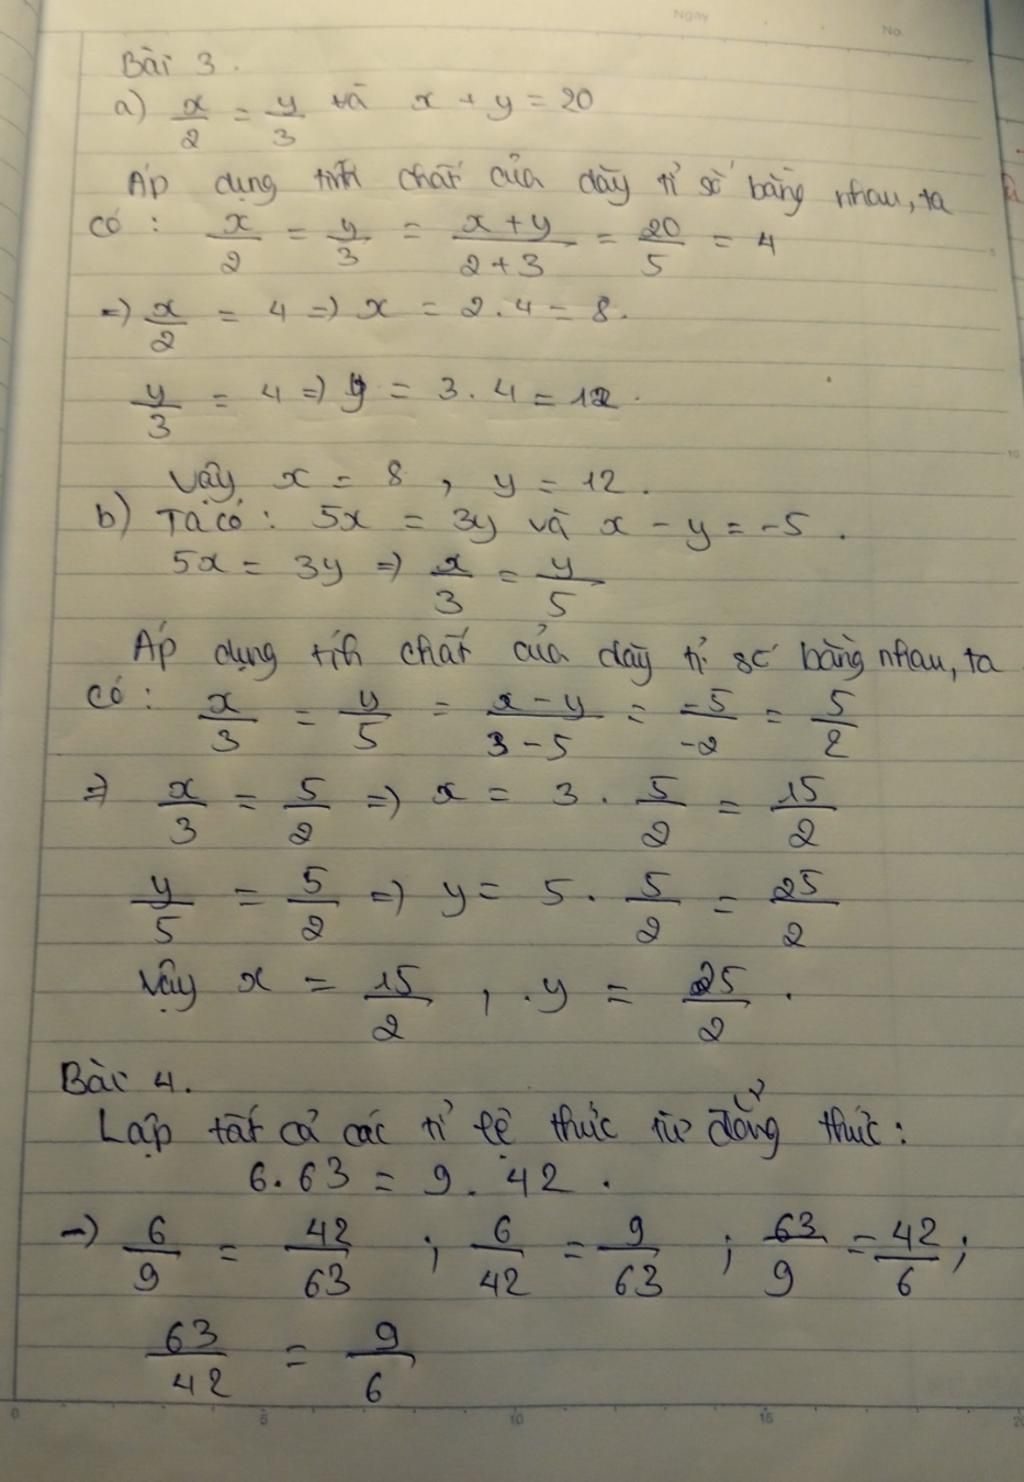 Ngày
No.
Bài 3.
a) x/2 = y/3 và x + y = 20
Áp dụng tính chất của dãy tỉ số bằng nhau, ta
có : x/2 = y/3 = (x+y)/(2+3) = 20/5 = 4
=> x/2 = 4 => x = 2.4 = 8.
y/3 = 4 => y = 3.4 = 12.
Vậy x = 8 , y = 12.
b) Ta có : 5x = 3y và x - y = -5 .
5x = 3y => x/3 = y/5
Áp dụng tính chất của dãy tỉ số bằng nhau, ta
có : x/3 = y/5 = (x-y)/(3-5) = -5/-2 = 5/2
=> x/3 = 5/2 => x = 3 . 5/2 = 15/2
y/5 = 5/2 => y = 5 . 5/2 = 25/2
Vậy x = 15/2 , y = 25/2 .
Bài 4.
Lập tất cả các tỉ lệ thức từ đẳng thức :
6.63 = 9.42 .
=> 6/9 = 42/63 ; 6/42 = 9/63 ; 63/9 = 42/6 ;
63/42 = 9/6
0 5 10 15 20
10